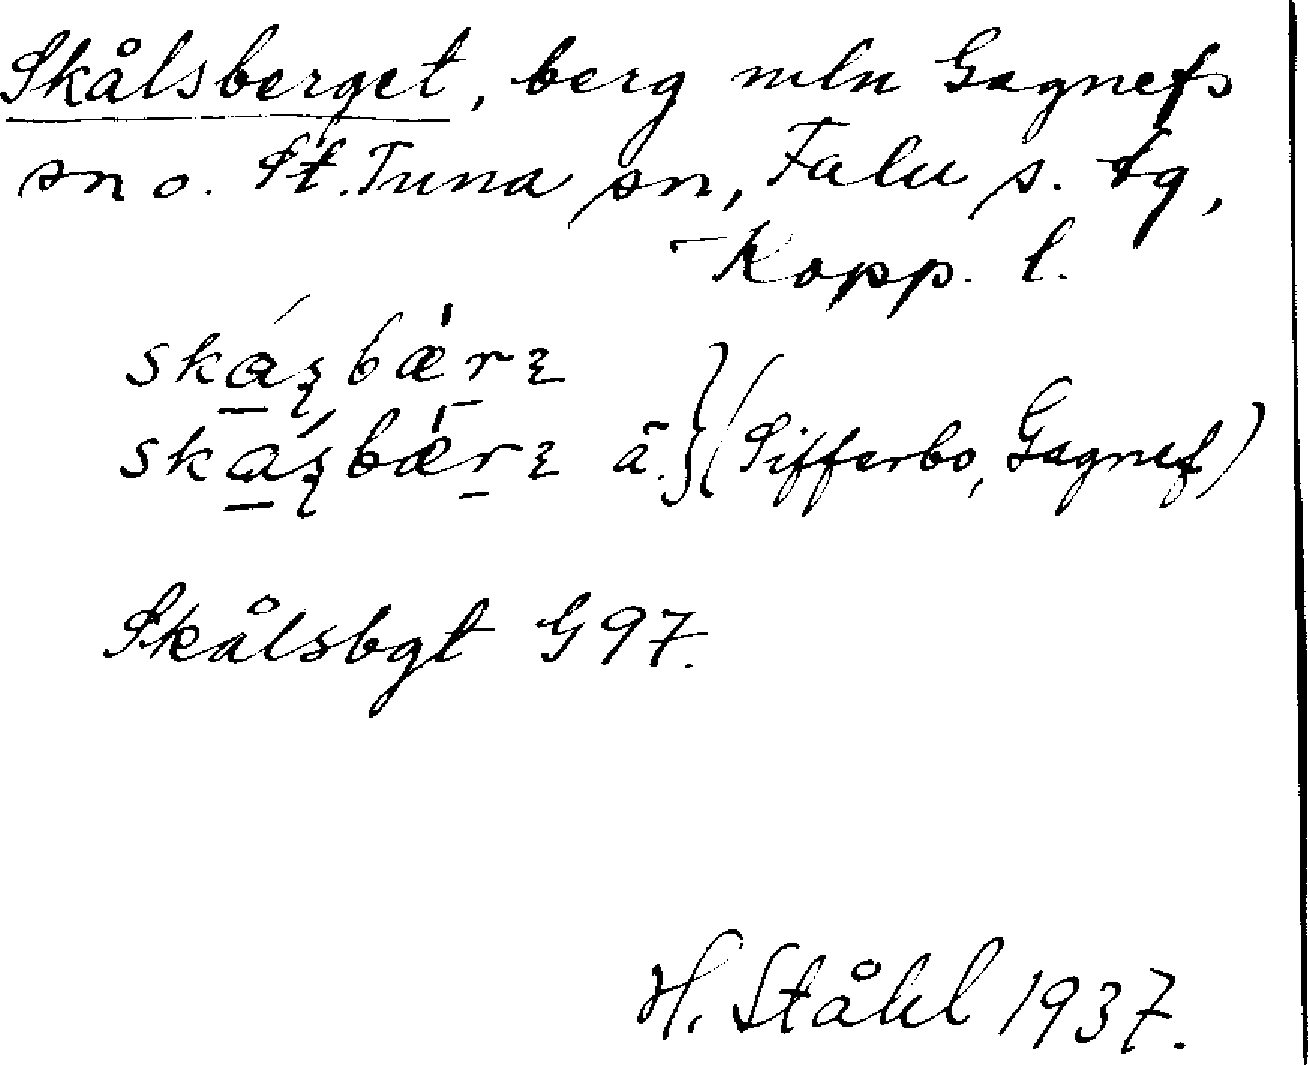 Skålsberget, berg mln Gagnefs
sn o. St. Tuna sn, Falu s. tg,
Kopp. l.
(Sifferbo, Gagnef)
ä.
Skålsbgt G 97.
H. Ståhl 1937.